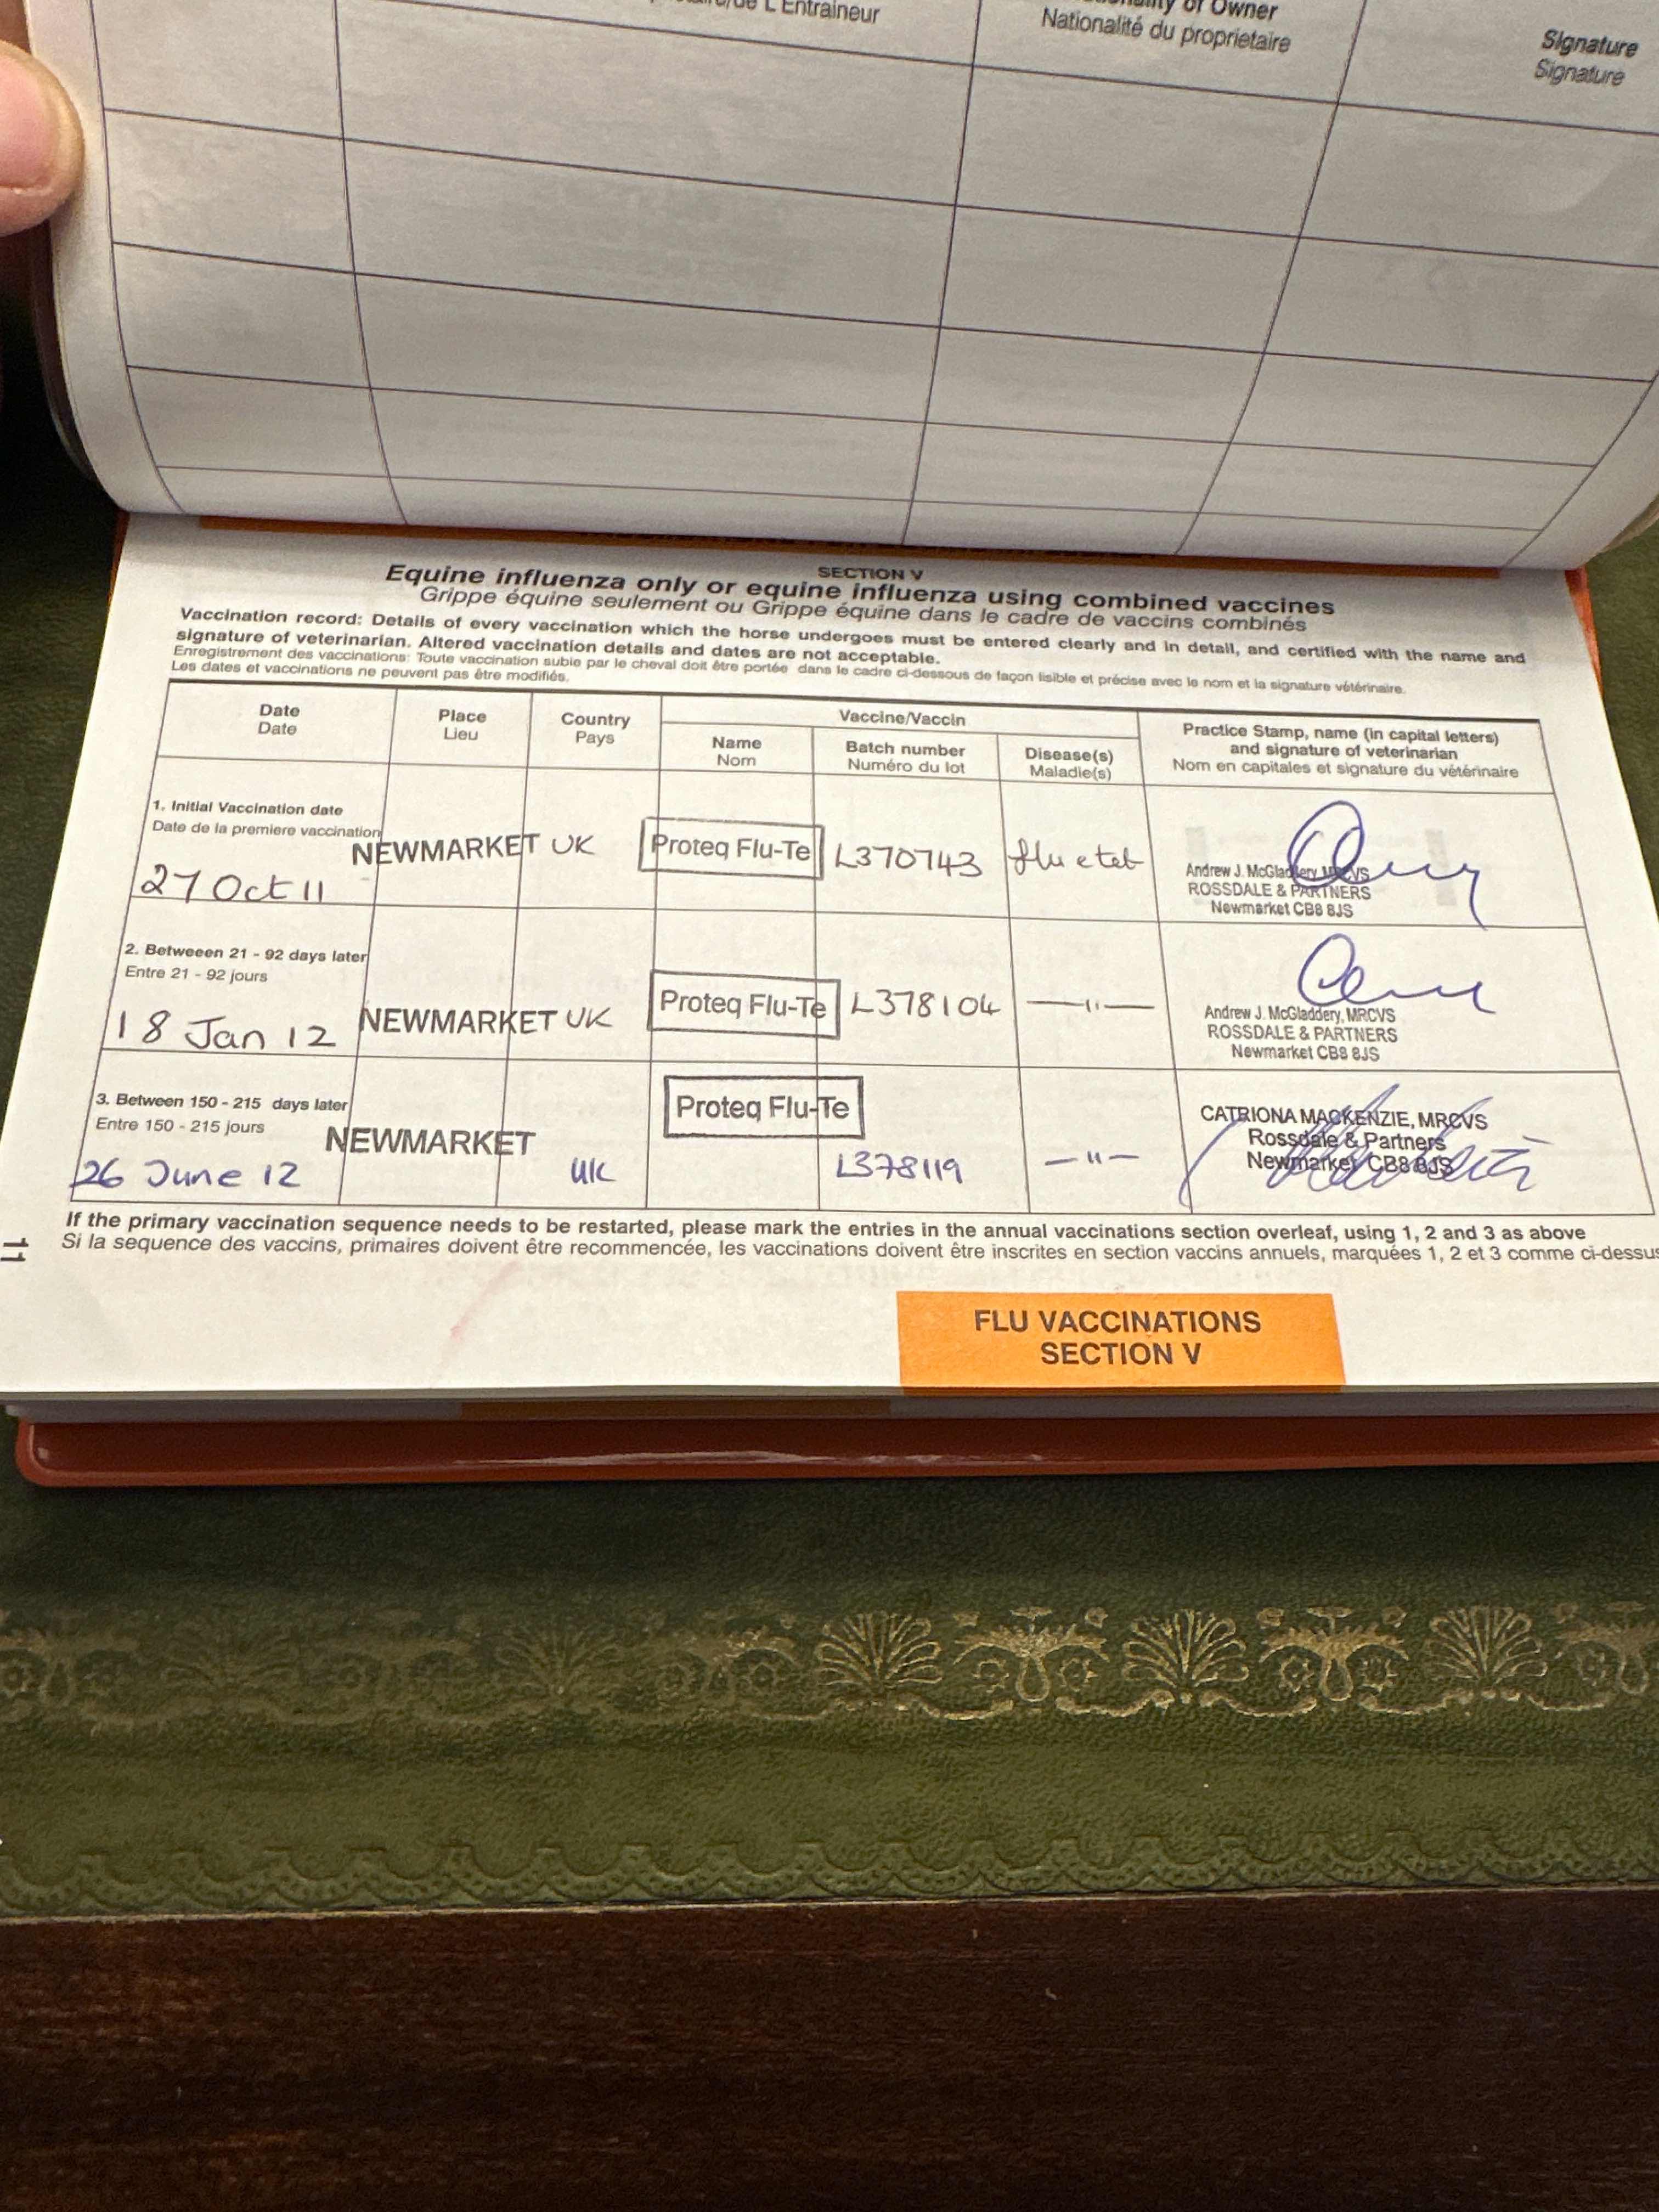 L'Entraineur
of Owner
Nationalité du proprietaire
Signature
Signature
SECTION V
Equine influenza only or equine influenza using combined vaccines
Grippe équine seulement ou Grippe équine dans le cadre de vaccins combinés
Vaccination record: Details of every vaccination which the horse undergoes must be entered clearly and in detail, and certified with the name and
signature of veterinarian. Altered vaccination details and dates are not acceptable.
Enregistrement des vaccinations: Toute vaccination subie par le cheval doit être portée dans le cadre ci-dessous de façon lisible et précise avec le nom et la signature vétérinaire.
Les dates et vaccinations ne peuvent pas être modifiés.
Date
Date
Place
Lieu
Country
Pays
Vaccine/Vaccin
Name
Nom
Batch number
Numéro du lot
Disease(s)
Maladie(s)
Practice Stamp, name (in capital letters)
and signature of veterinarian
Nom en capitales et signature du vétérinaire
1. Initial Vaccination date
Date de la premiere vaccination
27 Oct 11
NEWMARKET UK
Proteq Flu-Te
L370743
flu e tet
Andrew J. McGladdery, MRCVS
ROSSDALE & PARTNERS
Newmarket CB8 8JS
2. Betweeen 21 - 92 days later
Entre 21 - 92 jours
18 Jan 12
NEWMARKET UK
Proteq Flu-Te
L378104
—"—
Andrew J. McGladdery, MRCVS
ROSSDALE & PARTNERS
Newmarket CB8 8JS
3. Between 150 - 215 days later
Entre 150 - 215 jours
26 June 12
NEWMARKET
UK
Proteq Flu-Te
L378119
—"—
CATRIONA MACKENZIE, MRCVS
Rossdale & Partners
Newmarket CB8 8JS
If the primary vaccination sequence needs to be restarted, please mark the entries in the annual vaccinations section overleaf, using 1, 2 and 3 as above
Si la sequence des vaccins, primaires doivent être recommencée, les vaccinations doivent être inscrites en section vaccins annuels, marquées 1, 2 et 3 comme ci-dessus
11
FLU VACCINATIONS
SECTION V